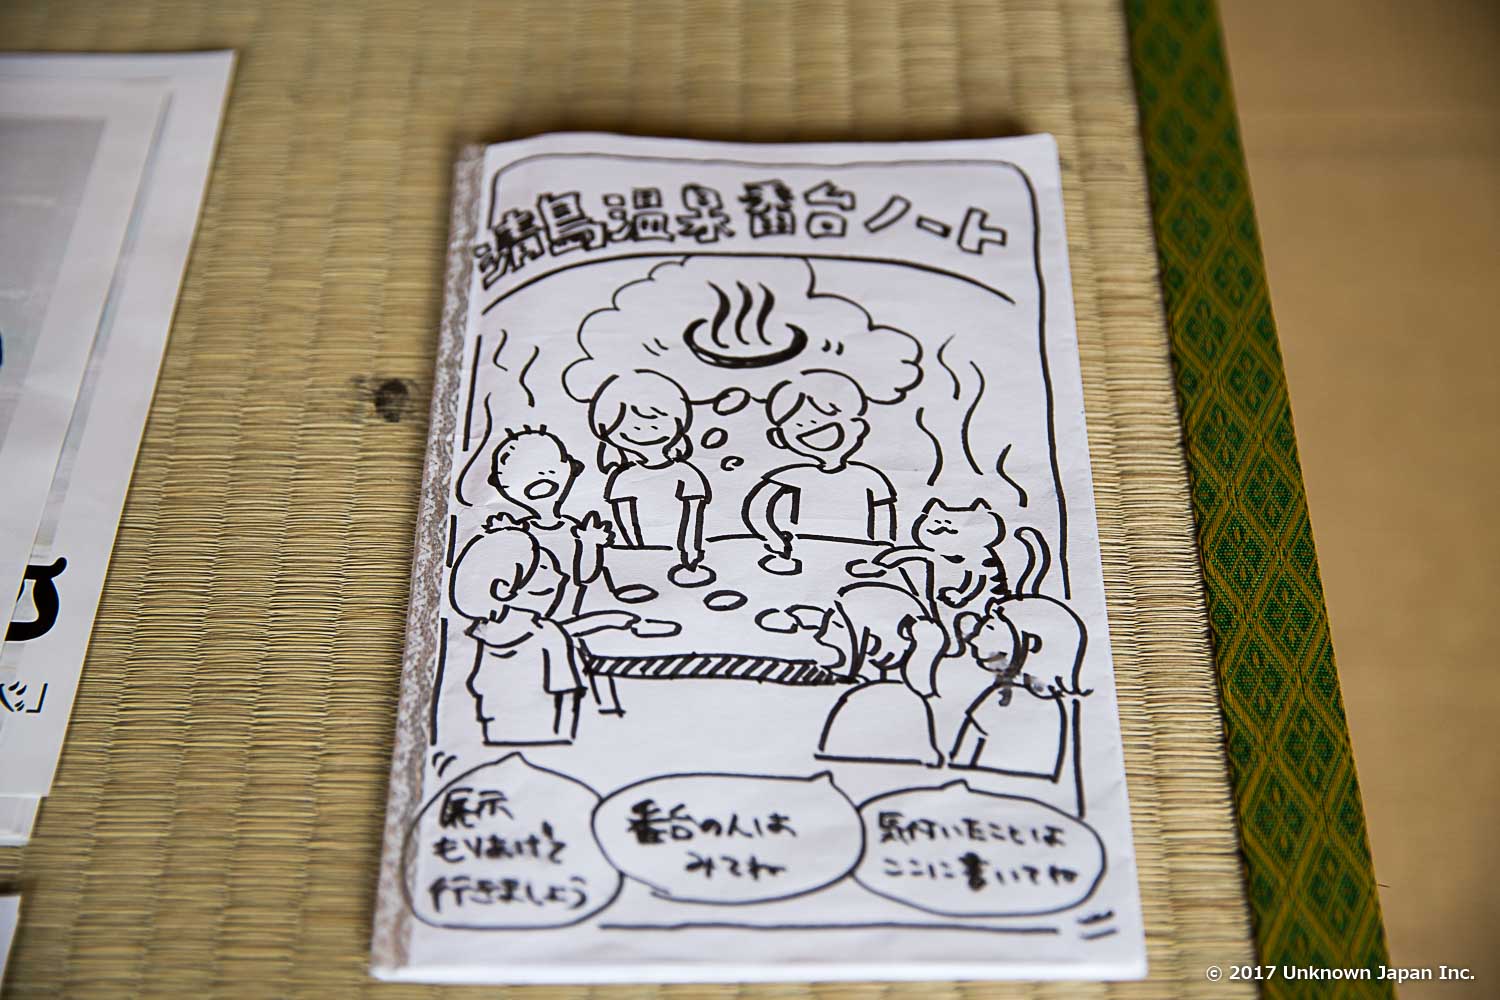 清島温泉番台ノート
展示
もりあげて
行きましょう
番台の人は
みてね
気付いたことは
ここに書いてね
© 2017 Unknown Japan Inc.